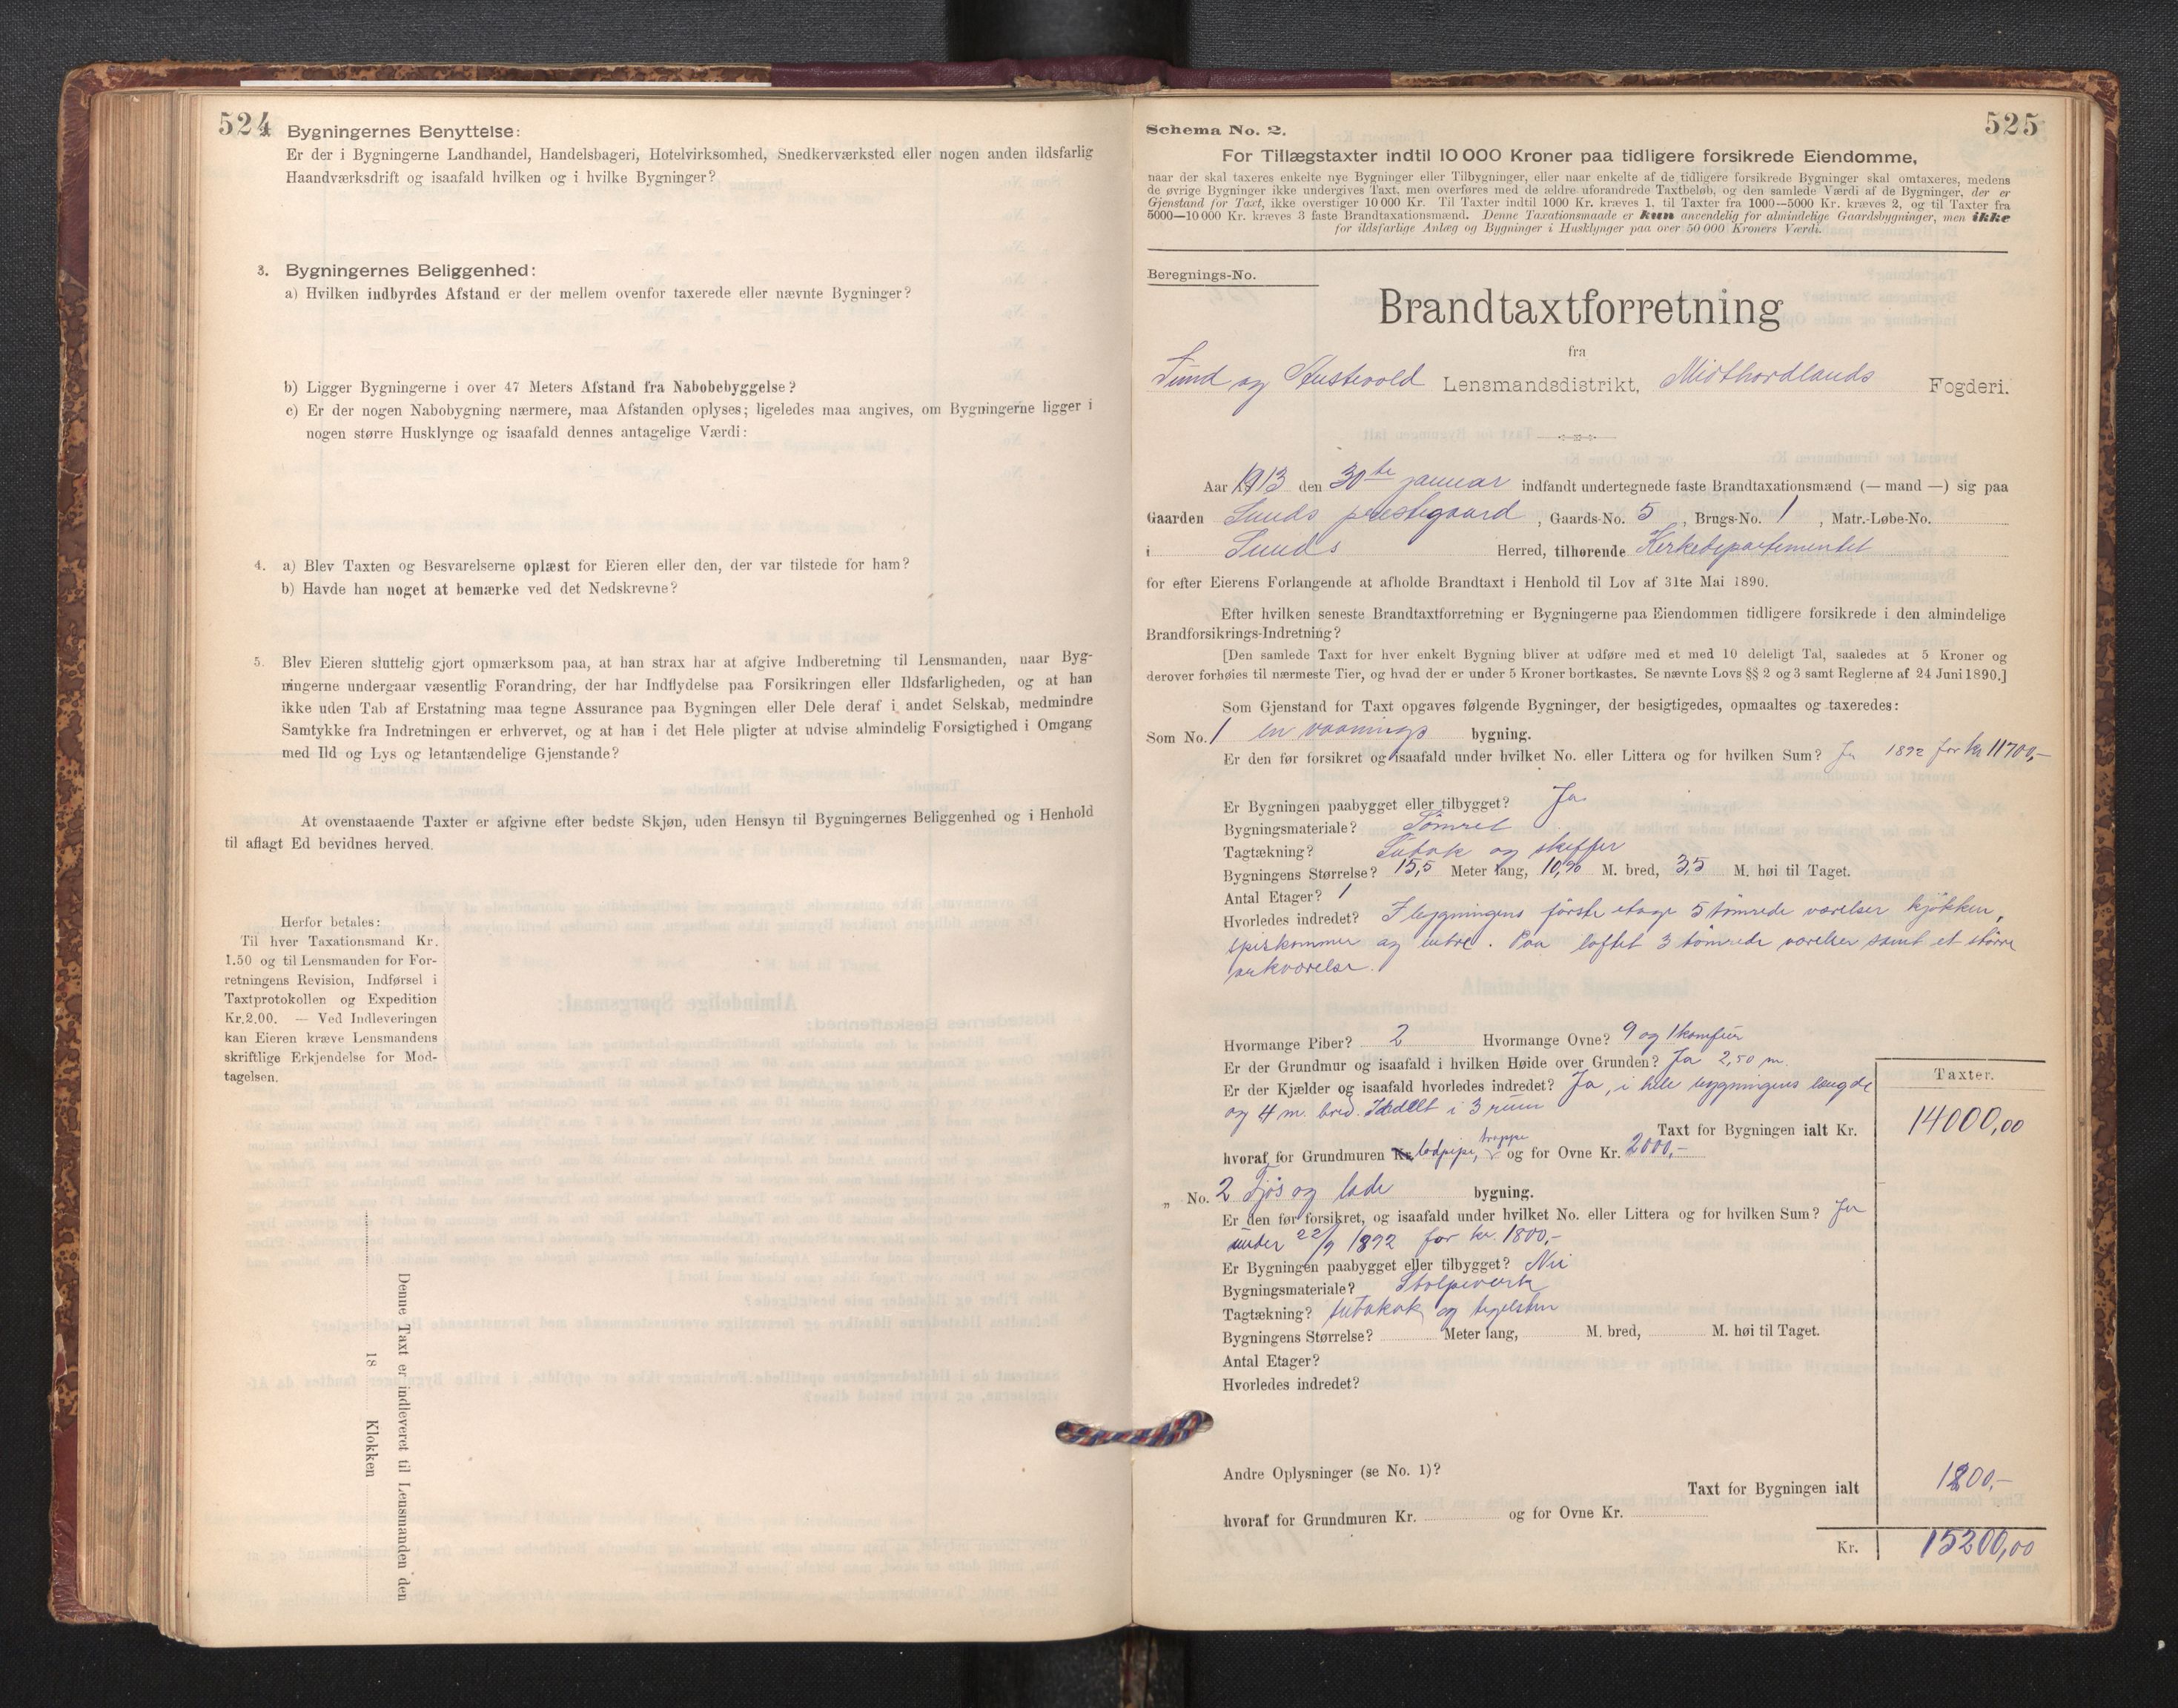 524
Bygningernes Benyttelse:
Er der i Bygningerne Landhandel, Handelsbageri, Hotelvirksomhed, Snedkerværksted eller nogen anden ildsfarlig
Haandværksdrift og isaafald hvilken og i hvilke Bygninger?
3. Bygningernes Beliggenhed:
a) Hvilken indbyrdes Afstand er der mellem ovenfor taxerede eller nævnte Bygninger?
b) Ligger Bygningerne i over 47 Meters Afstand fra Nabobebyggelse?
c) Er der nogen Nabobygning nærmere, maa Afstanden oplyses; ligeledes maa angives, om Bygningerne ligger i
nogen større Husklynge og isaafald dennes antagelige Værdi:
4. a) Blev Taxten og Besvarelserne oplæst for Eieren eller den, der var tilstede for ham?
b) Havde han noget at bemærke ved det Nedskrevne?
5. Blev Eieren sluttelig gjort opmærksom paa, at han strax har at afgive Indberetning til Lensmanden, naar Byg-
ningerne undergaar væsentlig Forandring, der har Indflydelse paa Forsikringen eller Ildsfarligheden, og at han
ikke uden Tab af Erstatning maa tegne Assurance paa Bygningen eller Dele deraf i andet Selskab, medmindre
Samtykke fra Indretningen er erhvervet, og at han i det Hele pligter at udvise almindelig Forsigtighed i Omgang
med Ild og Lys og letantændelige Gjenstande?
At ovenstaaende Taxter er afgivne efter bedste Skjøn, uden Hensyn til Bygningernes Beliggenhed og i Henhold
til aflagt Ed bevidnes herved.
Herfor betales:
Til hver Taxationsmand Kr.
1.50 og til Lensmanden for For-
retningens Revision, Indførsel i
Taxtprotokollen og Expedition
Kr. 2.00. — Ved Indleveringen
kan Eieren kræve Lensmandens
skriftlige Erkjendelse for Mod-
tagelsen.
Denne Taxt er indleveret til Lensmanden den
18 Klokken
525
Schema No. 2.
For Tillægstaxter indtil 10 000 Kroner paa tidligere forsikrede Eiendomme,
naar der skal taxeres enkelte nye Bygninger eller Tilbygninger, eller naar enkelte af de tidligere forsikrede Bygninger skal omtaxeres, medens
de øvrige Bygninger ikke undergives Taxt, men overføres med de ældre uforandrede Taxtbeløb, og den samlede Værdi af de Bygninger, der er
Gjenstand for Taxt, ikke overstiger 10 000 Kr. Til Taxter indtil 1000 Kr. kræves 1, til Taxter fra 1000—5000 Kr. kræves 2, og til Taxter fra
5000—10 000 Kr. kræves 3 faste Brandtaxationsmænd. Denne Taxationsmaade er kun anvendelig for almindelige Gaardsbygninger, men ikke
for ildsfarlige Anlæg og Bygninger i Husklynger paa over 50 000 Kroners Værdi.
Beregnings-No.
Brandtaxtforretning
fra
Sund og Austevold Lensmandsdistrikt, Midthordlands Fogderi.
Aar 1913 den 30te januar indfandt undertegnede faste Brandtaxationsmænd (— mand —) sig paa
Gaarden Sunds prestegaard, Gaards-No. 5, Brugs-No. 1, Matr.-Løbe-No.
i Sunds Herred, tilhørende Kirkedepartementet
for efter Eierens Forlangende at afholde Brandtaxt i Henhold til Lov af 31te Mai 1890.
Efter hvilken seneste Brandtaxtforretning er Bygningerne paa Eiendommen tidligere forsikrede i den almindelige
Brandforsikrings-Indretning?
[Den samlede Taxt for hver enkelt Bygning bliver at udføre med et med 10 deleligt Tal, saaledes at 5 Kroner og
derover forhøies til nærmeste Tier, og hvad der er under 5 Kroner bortkastes. Se nævnte Lovs §§ 2 og 3 samt Reglerne af 24 Juni 1890.]
Som Gjenstand for Taxt opgaves følgende Bygninger, der besigtigedes, opmaaltes og taxeredes:
Som No. 1 en vaanings bygning.
Er den før forsikret og isaafald under hvilket No. eller Littera og for hvilken Sum? Ja 1892 for kr 11700,-
Er Bygningen paabygget eller tilbygget? Ja
Bygningsmateriale? Tømret
Tagtækning? Sutak og skiffer
Bygningens Størrelse? 15,5 Meter lang, 10,90 M. bred, 3,5 M. høi til Taget.
Antal Etager? 1
Hvorledes indredet? I bygningens første etage 5 tømrede værelser kjøkken,
spiskammer og entre. Paa loftet 3 tømrede værelser samt et større
arkværelse.
Hvormange Piber? 2 Hvormange Ovne? 9 og 1 komfür
Er der Grundmur og isaafald i hvilken Høide over Grunden? Ja 2,50 m.
Er der Kjælder og isaafald hvorledes indredet? Ja, i hele bygningens længde
og 4 m. bred. Inddelt i 3 rum
Taxter.
Taxt for Bygningen ialt Kr. 14000,00
hvoraf for Grundmuren Kr. lodpipe, trappe og for Ovne Kr. 2000,-
" No. 2 Fjøs og lade bygning.
Er den før forsikret, og isaafald under hvilket No. eller Littera og for hvilken Sum? Ja
under 22/9 1892 for kr. 1800,-
Er Bygningen paabygget eller tilbygget? Nei
Bygningsmateriale? Stolpeverk
Tagtækning? sutak og teglsten
Bygningens Størrelse? Meter lang, M. bred, M. høi til Taget.
Antal Etager?
Hvorledes indredet?
Andre Oplysninger (se No. 1)?
Taxt for Bygningen ialt 1200,-
hvoraf for Grundmuren Kr. og for Ovne Kr.
Kr. 15200,00